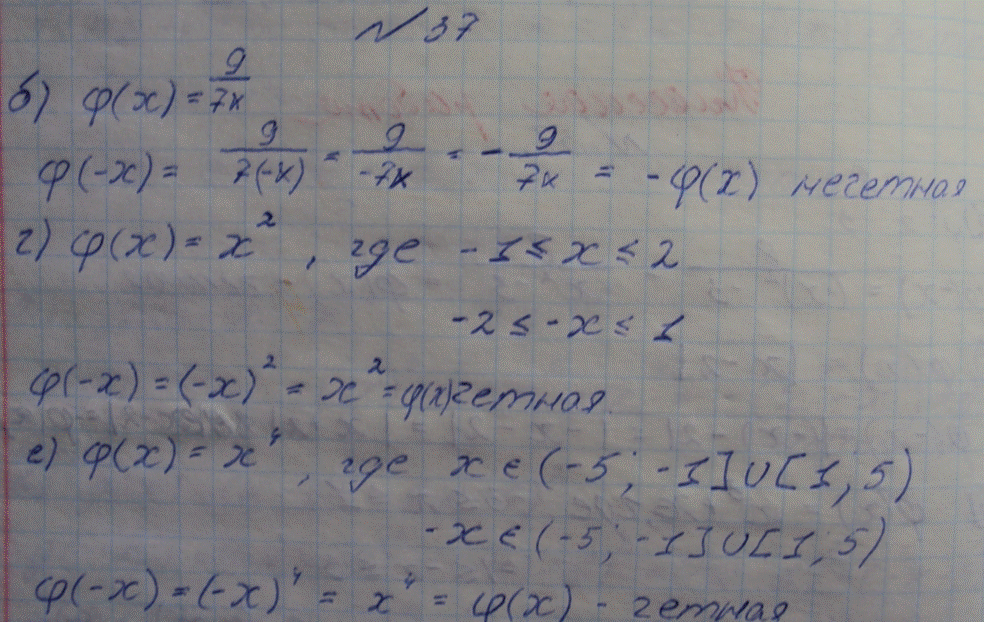 № 37
б) φ(x) = 9/7x
φ(-x) = 9/7(-x) = 9/-7x = - 9/7x = -φ(x) нечетная
г) φ(x) = x², где -1 ≤ x ≤ 2
-2 ≤ -x ≤ 1
φ(-x) = (-x)² = x² = φ(x) четная
е) φ(x) = x⁴, где x ∈ (-5; -1] ∪ [1, 5)
-x ∈ (-5; -1] ∪ [1; 5)
φ(-x) = (-x)⁴ = x⁴ = φ(x) - четная